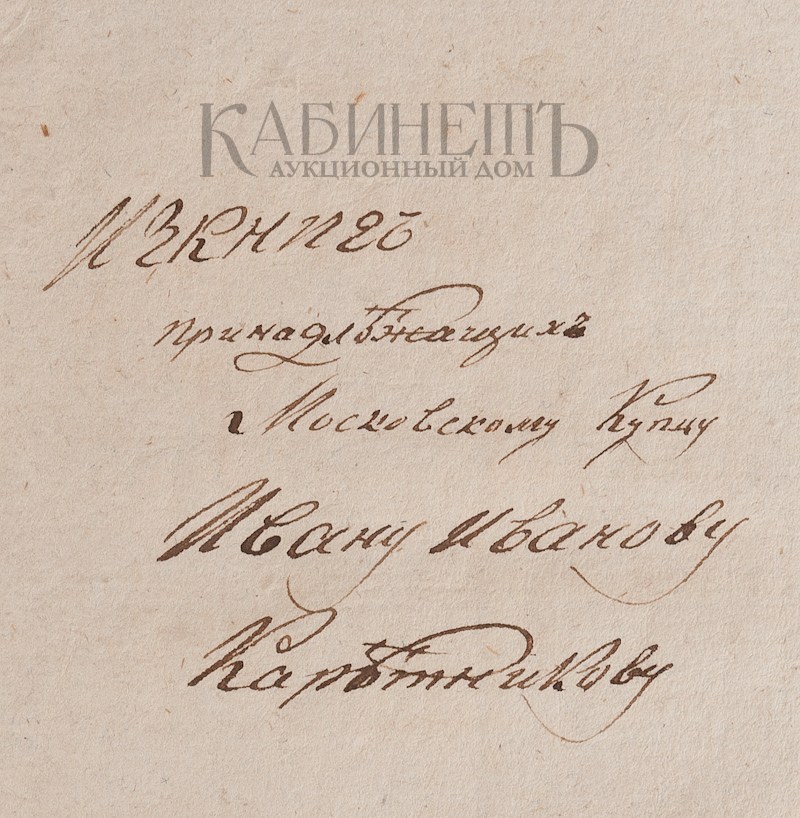 КАБИНЕТЪ
АУКЦИОННЫЙ ДОМ
ИЗ КНИГЪ
принадлѣжащихъ
Московскому Купцу
Ивану Иванову
Карѣтникову